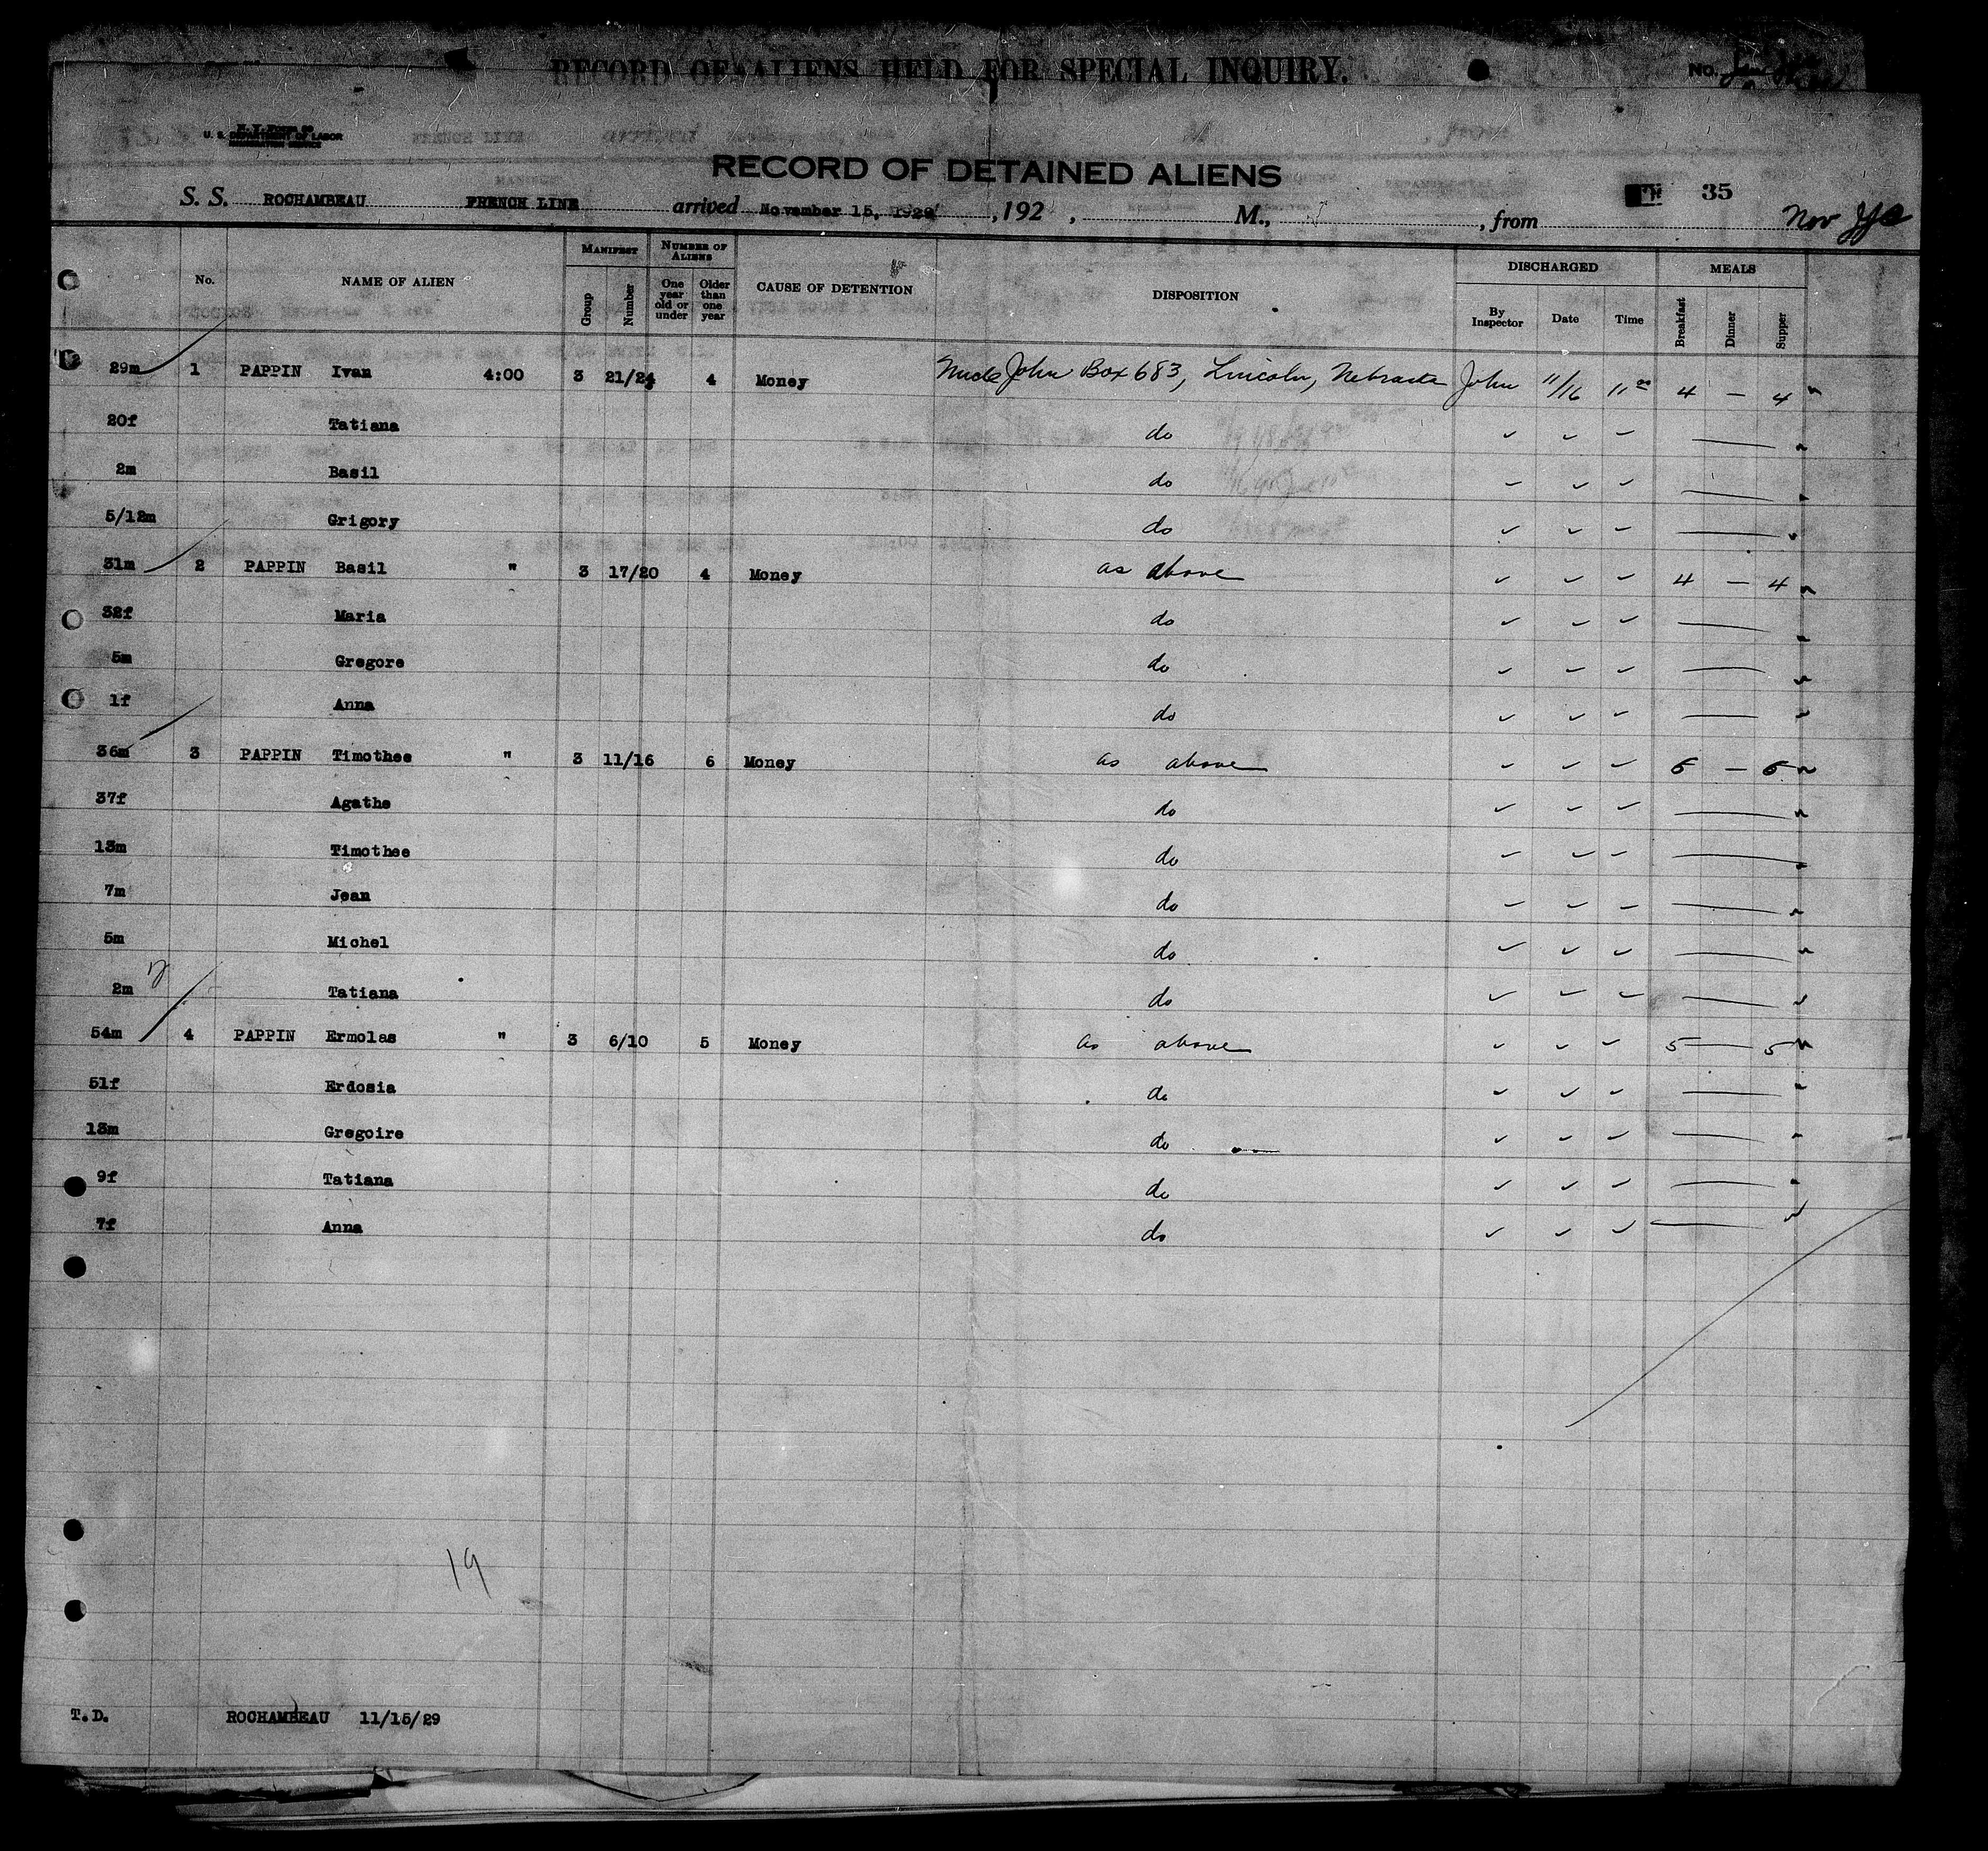 RECORD OF ALIENS HELD FOR SPECIAL INQUIRY.
No.
U. S. DEPARTMENT OF LABOR
RECORD OF DETAINED ALIENS
35
S. S. ROCHAMBEAU FRENCH LINE arrived November 15, 1929 ,192 , M., , from Nov
No. NAME OF ALIEN MANIFEST Group Number NUMBER OF ALIENS One year old or under Older than one year CAUSE OF DETENTION DISPOSITION DISCHARGED By Inspector Date Time MEALS Breakfast Dinner Supper
29m 1 PAPPIN Ivan 4:00 3 21/24 4 Money Uncle John Box 683, Lincoln, Nebraska John 11/16 11 00 4 — 4
20f Tatiana do
2m Basil do
5/12m Grigory do
31m 2 PAPPIN Basil " 3 17/20 4 Money as above 4 — 4
32f Maria do
5m Gregore do
1f Anna do
36m 3 PAPPIN Timothee " 3 11/16 6 Money as above 6 — 6
37f Agathe do
13m Timothee do
7m Jean do
5m Michel do
2m Tatiana do
54m 4 PAPPIN Ermolas " 3 6/10 5 Money as above 5 — 5
51f Erdosia do
13m Gregoire do
9f Tatiana do
7f Anna do
19
T.D. ROCHAMBEAU 11/15/29